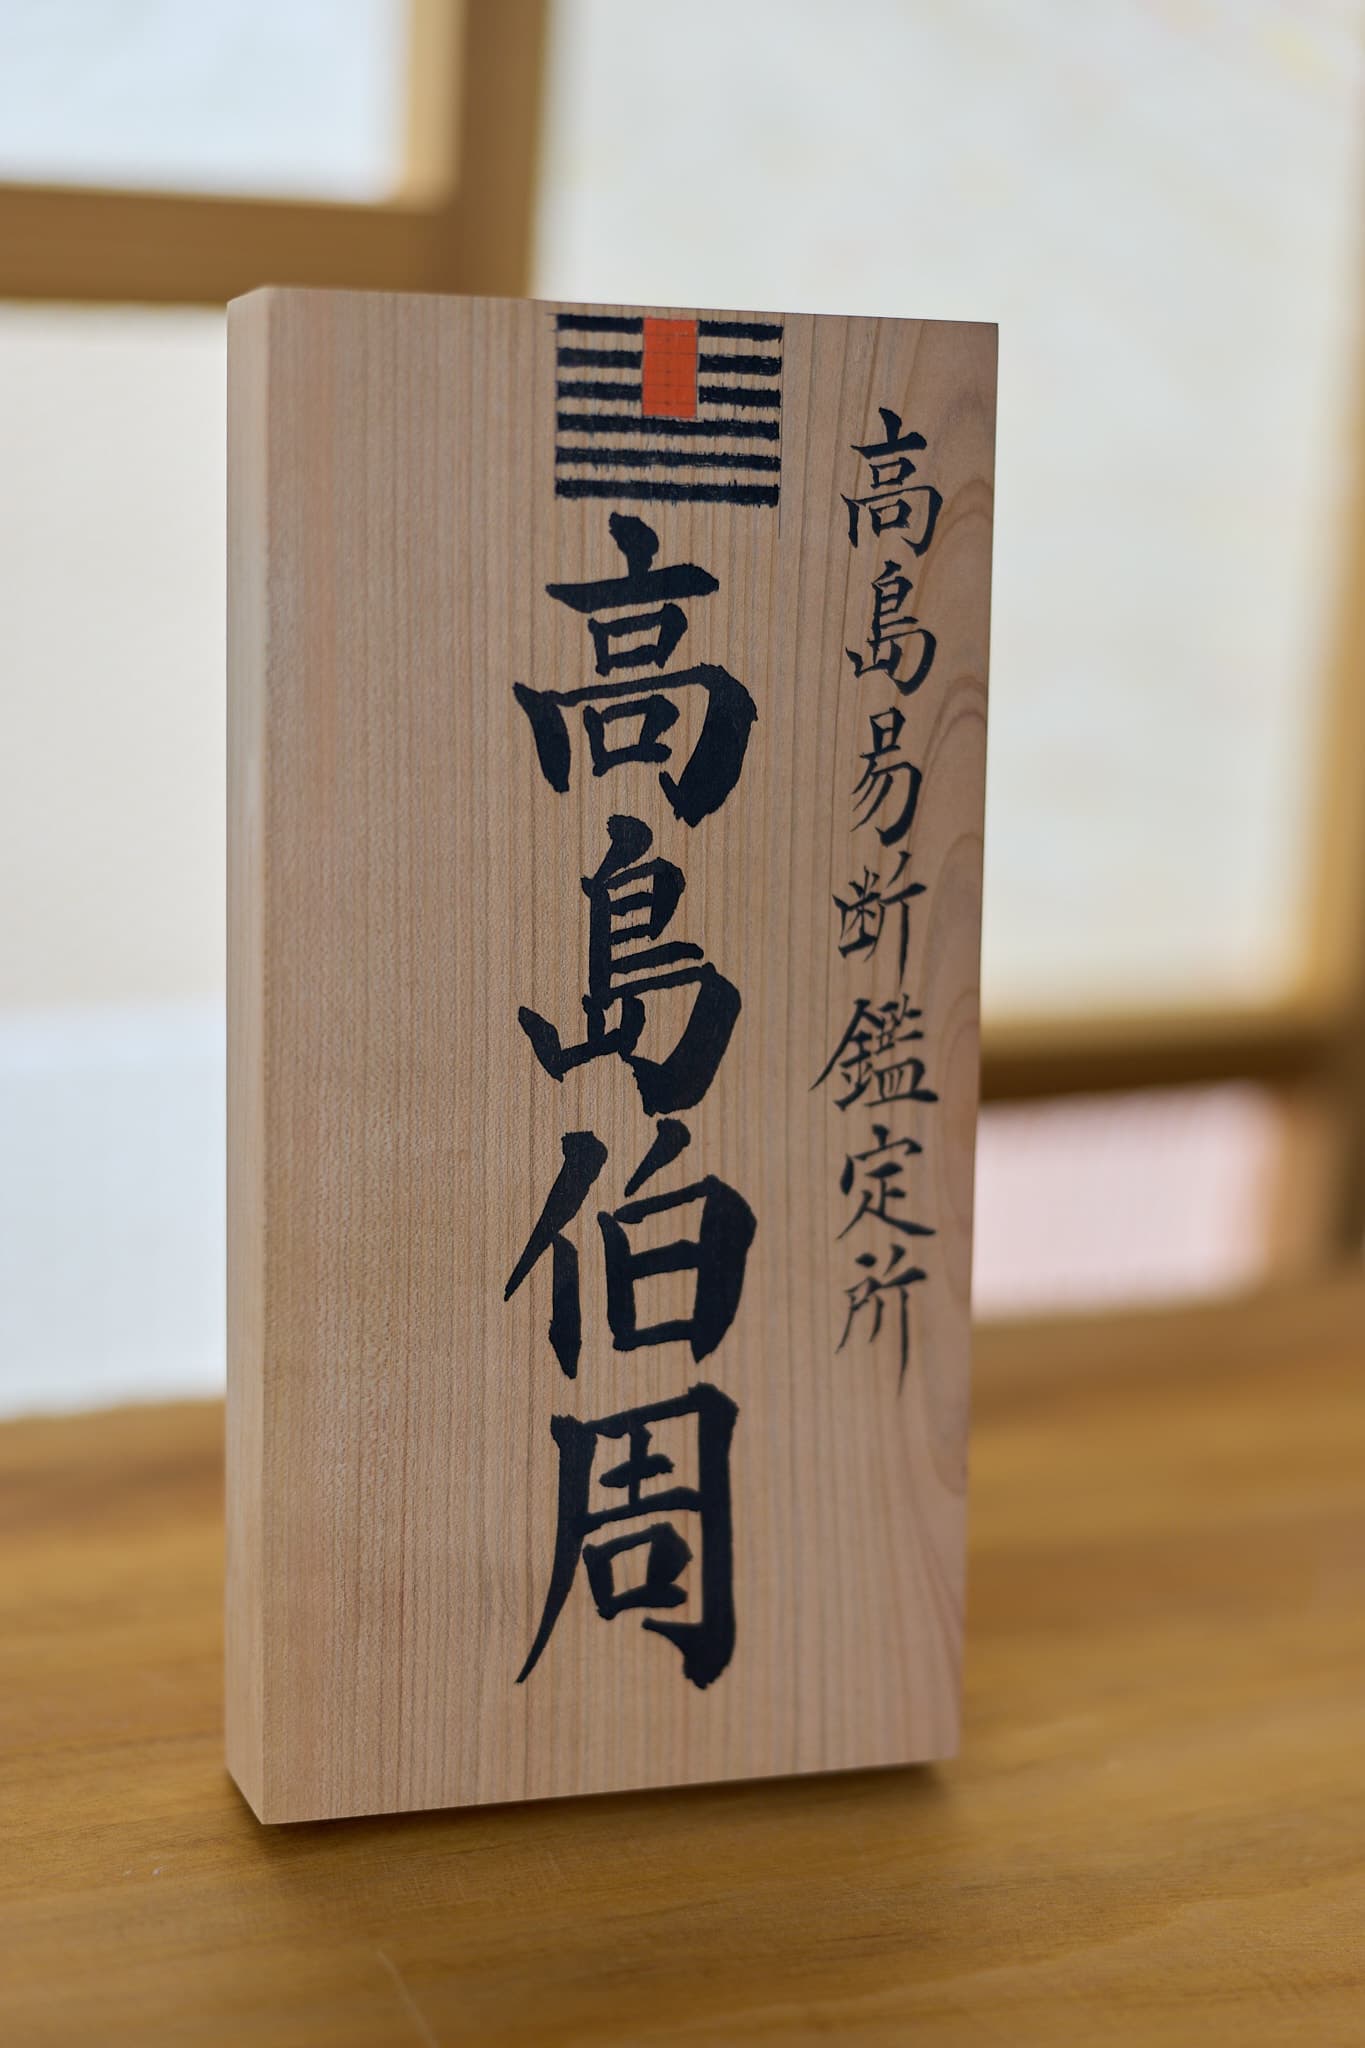 高島易断鑑定所
高島伯周